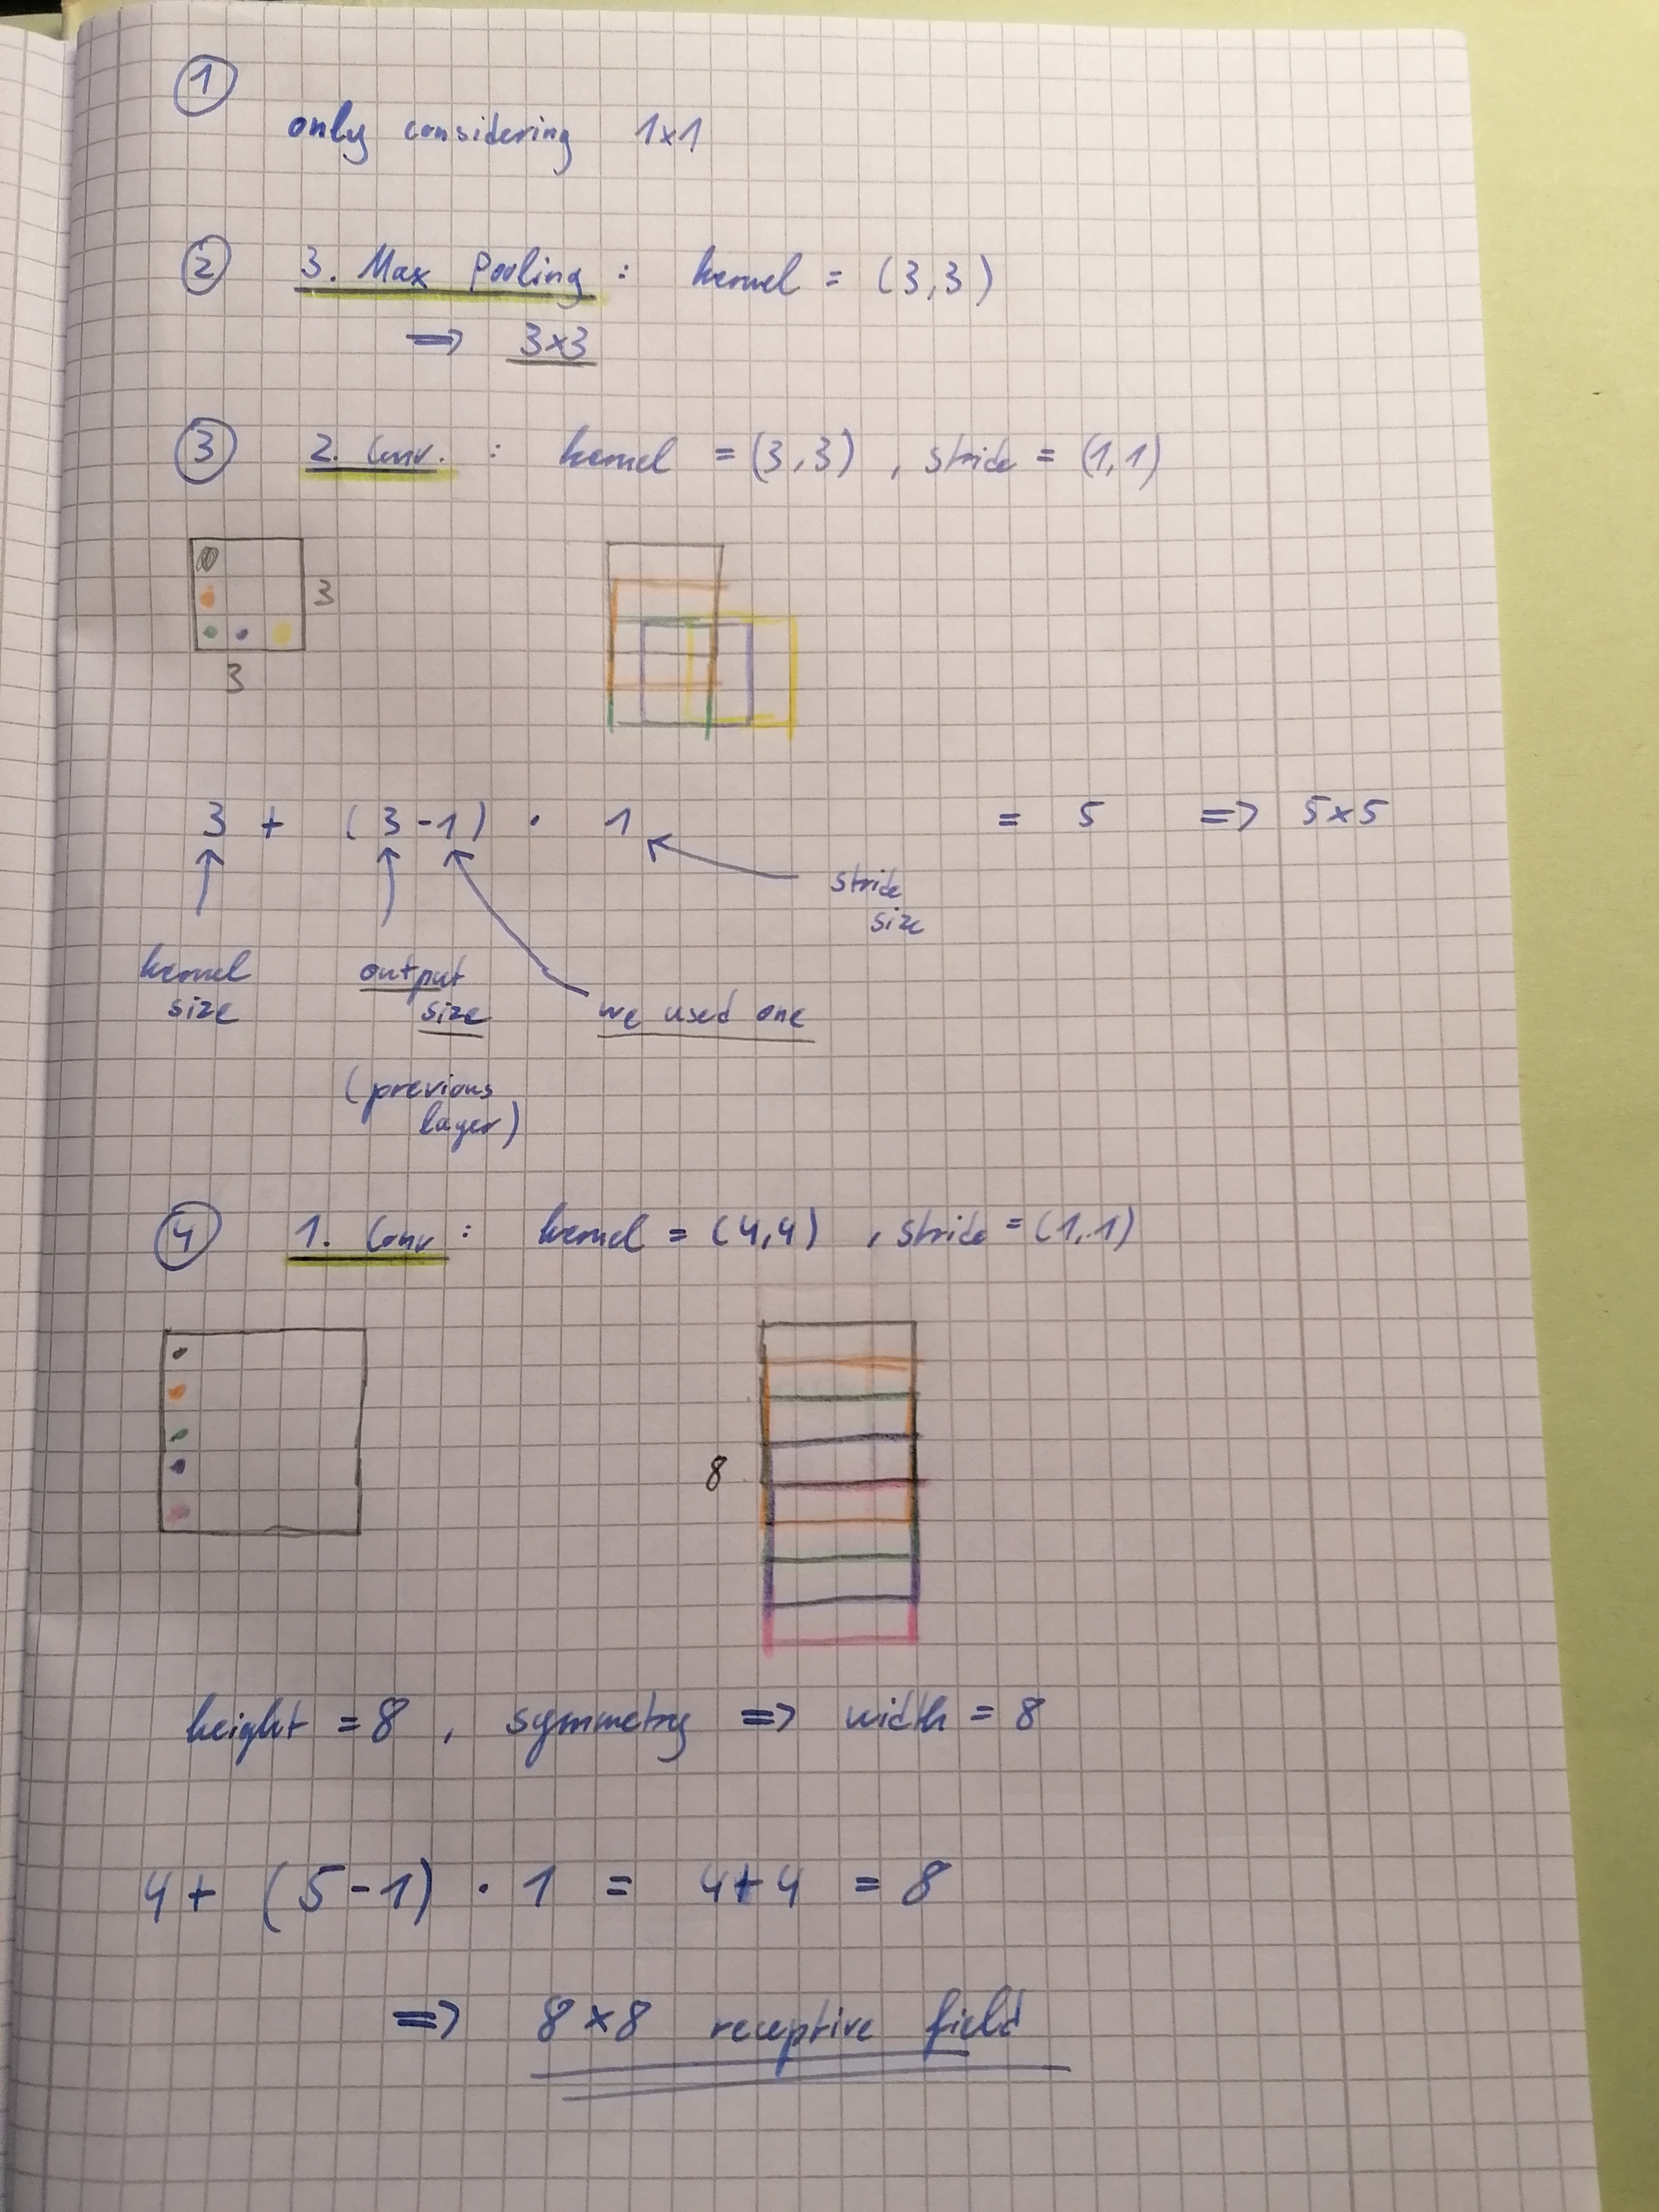 1
only considering 1x1
2 3. Max Pooling : kernel = (3,3)
=> 3x3
3 2. Conv. : kernel = (3,3) , stride = (1,1)
3
3
3 + (3-1) · 1 = 5 => 5x5
stride
size
kernel
size
output
size
we used one
(previous
layer)
4 1. Conv : kernel = (4,4) , stride = (1,1)
8
height = 8 , symmetry => width = 8
4 + (5-1) · 1 = 4+4 = 8
=> 8x8 receptive field